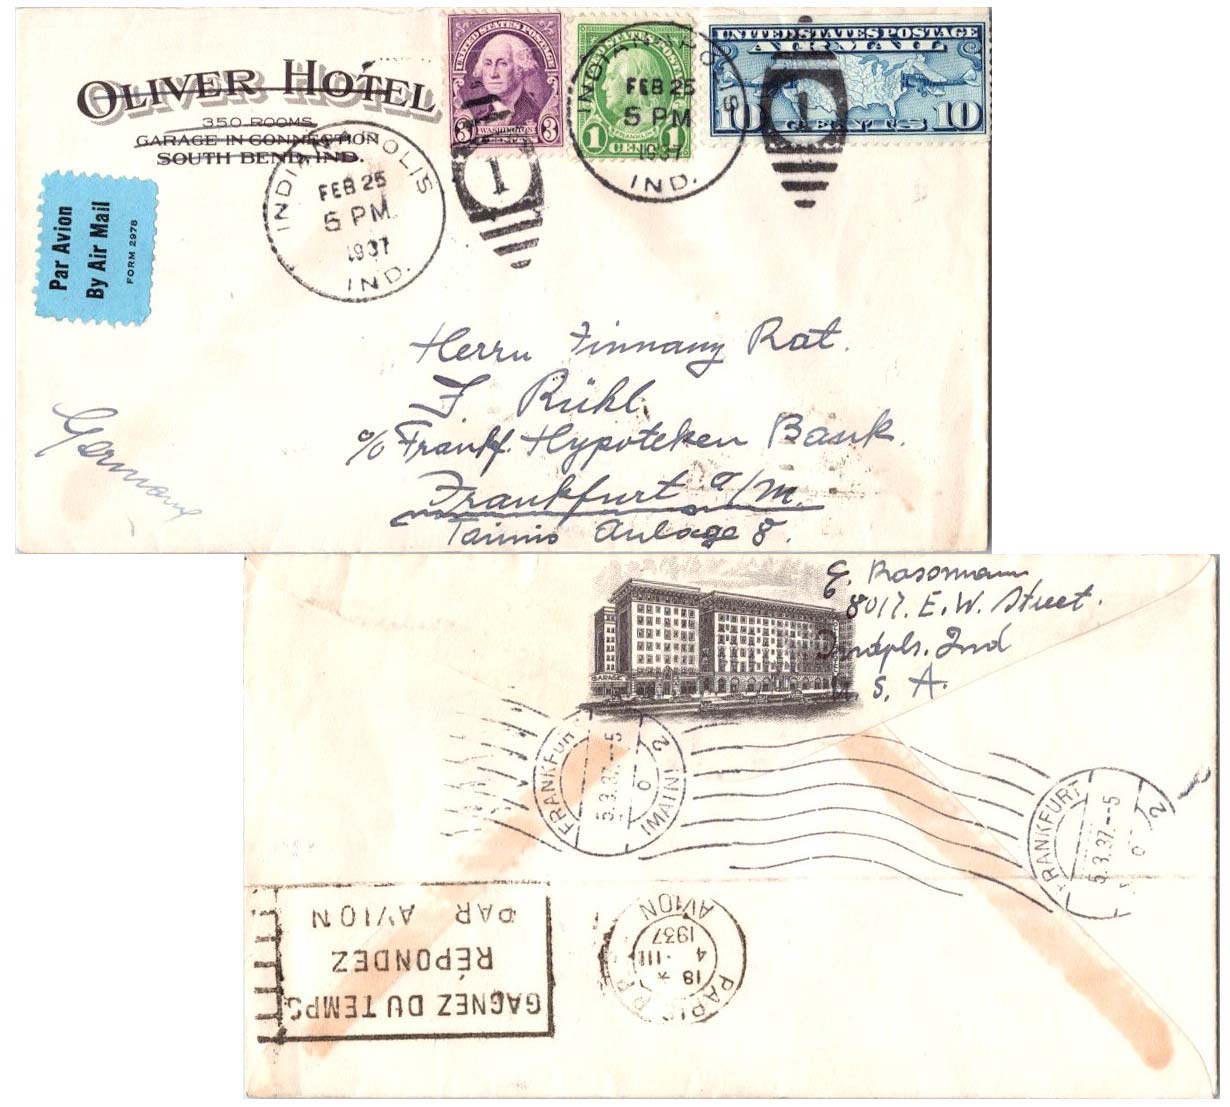 OLIVER HOTEL
350 ROOMS
GARAGE IN CONNECTION
SOUTH BEND, IND.
UNITED STATES POSTAGE
3 WASHINGTON 3
CENTS
UNITED STATES POSTAGE
1 FRANKLIN 1
CENT
UNITED STATES POSTAGE
AIR MAIL
10 CENTS 10
INDIANAPOLIS
FEB 25
5 PM
1937
IND.
1
INDIANAPOLIS
FEB 25
5 PM
1937
IND.
1
Par Avion
By Air Mail
FORM 2978
Herrn Finnanz Rat.
F Rühl
c/o Frankf. Hypoteken Bank.
Frankfurt a/M.
Taunus Anlage 8.
Germany
E. Rassmann
8017. E. W. Street.
Indpls. Ind
U. S. A.
GARAGE
FRANKFURT (MAIN) 2
5.3.37.--5
0
FRANKFURT
5.3.37.--5
2
PARIS
18
4 - III
1937
AVION
GAGNEZ DU TEMPS
RÉPONDEZ
PAR AVION